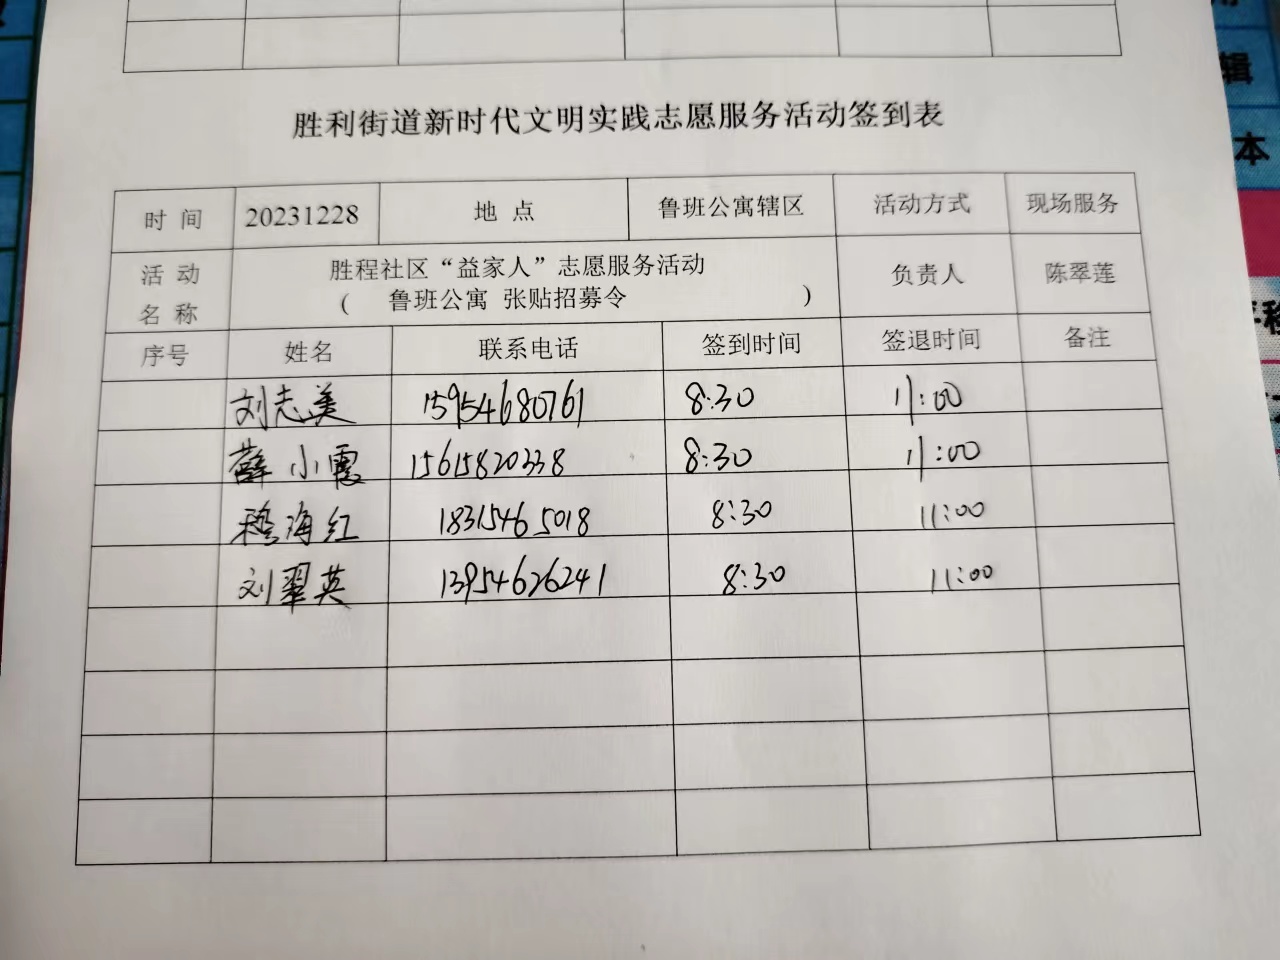 胜利街道新时代文明实践志愿服务活动签到表
时 间 20231228 地 点 鲁班公寓辖区 活动方式 现场服务
活 动 名 称 胜程社区“益家人”志愿服务活动 负责人 陈翠莲
( 鲁班公寓 张贴招募令 )
序号 姓名 联系电话 签到时间 签退时间 备注
刘志美 15954680761 8:30 11:00
薛小霞 15615820338 8:30 11:00
穆海红 18315465018 8:30 11:00
刘翠英 13954626241 8:30 11:00
辑
本